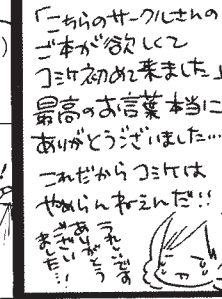 「こちらのサークルさんの
ご本が欲しくて
コミケ初めて来ました」
最高のお言葉本当に
ありがとうございました…
これだからコミケは
やめらんねぇんだ!!
うれしいです
ありがとう
ござい
ました…!